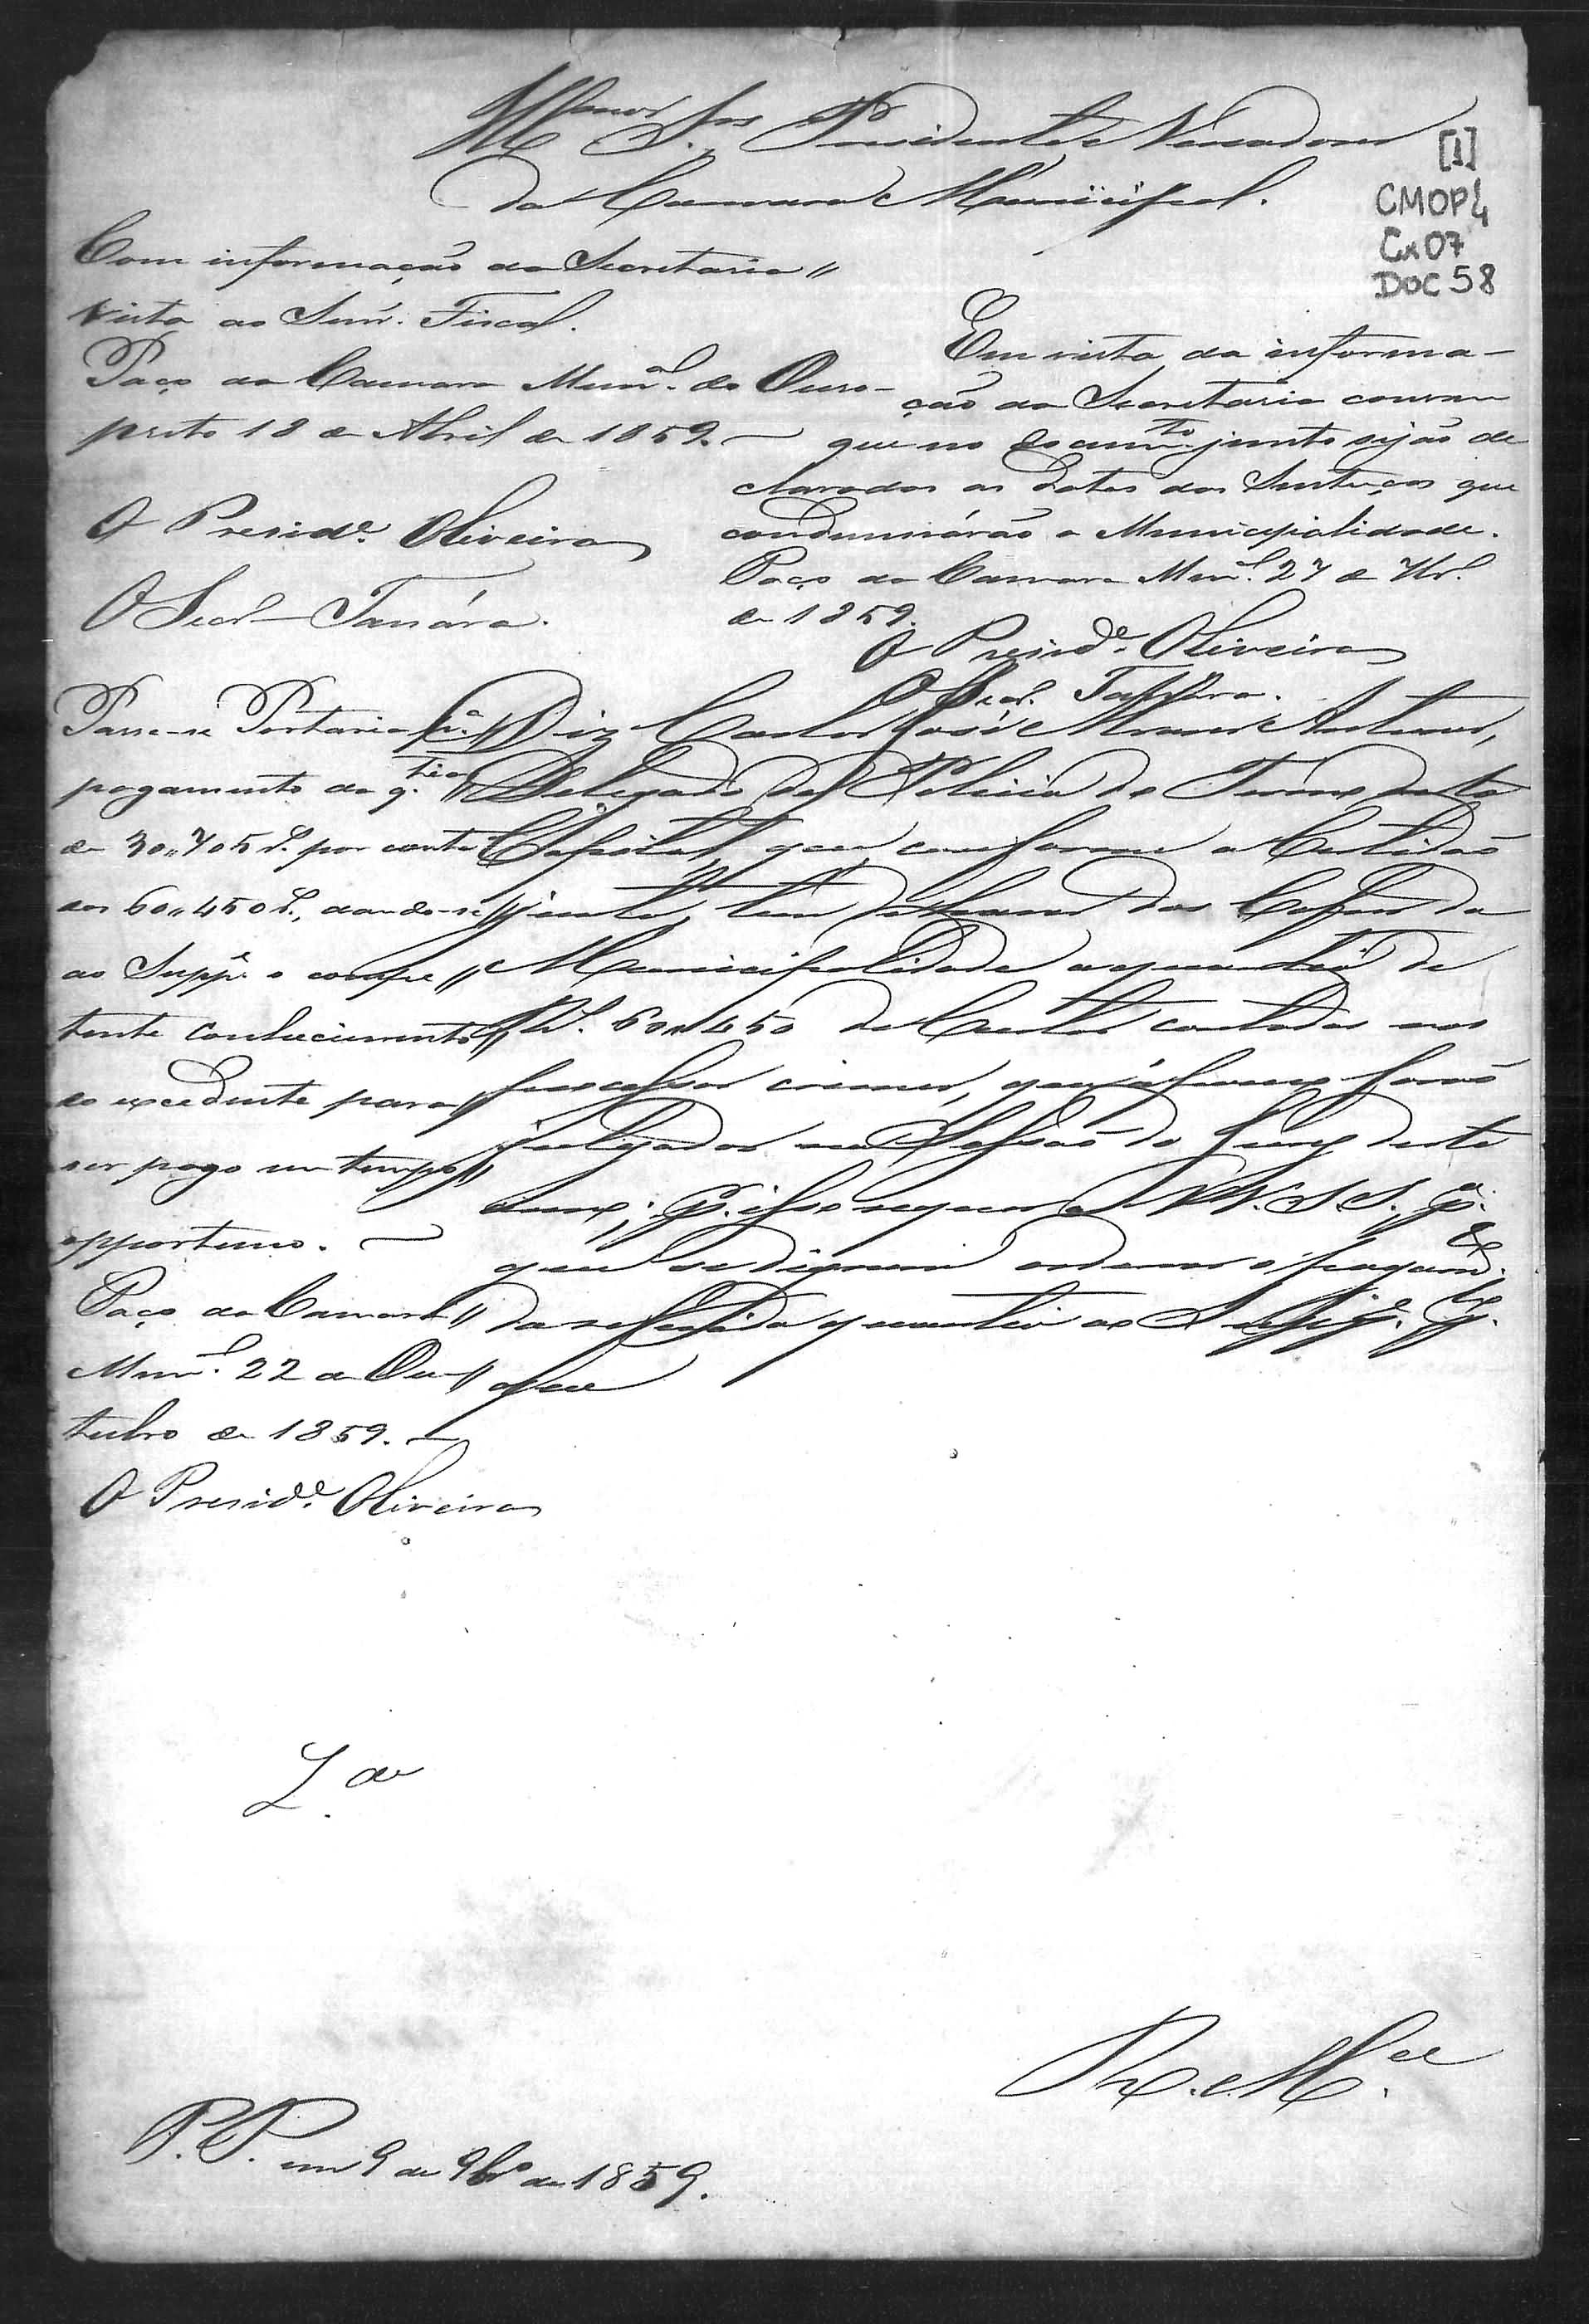 Ill.mos Snr.es Presidente e Vereadores
da Camara Municipal.
[1]
CMOP
Cx07
DOC 58
Com informação da Secretaria
vista ao Snr. Fiscal.
Paço da Camara Mun.al do Ouro-
preto 18 de Abril de 1859.
O Presid.e Oliveira
O Secr.
Em vista da informa-
ção da Secretaria convem
que no docum.to junto sejão de
clarados as datas das Sentenças que
condemnárão a Municipalidade.
Paço da Camara Mun.al 27 de
de 1859.
O Presid.e Oliveira
O Secr.
Passe-se Portaria p.a
pagamento da q.tia
de 30,,705 r.s por conta
dos 60,,450 r.s, dando-se
ao Supp.e o compe
tente conhecimento
do excedente para
ser pago em tempo
opportuno.
Paço da Camara
Mun.al 22 de Ou
tubro de 1859.
O Presid.e Oliveira
Diz Carlos José Antunes,
Delegado de Policia do Termo desta
Capital, que, conforme a Certidão
junta, tem de haver dos Cofres da
Municipalidade a quantia de
R.s 60,,450 de Custas contadas nos
processos crimes, que forão
julgados na Sessão do Jury deste
anno; p.r isso requer a VV. SS. p.a
que se dignem ordenar o pagam.to
da referida quantia ao Supp.e P.
que
E. R. M.ce
P. P. em 9 de 9br.o de 1859.